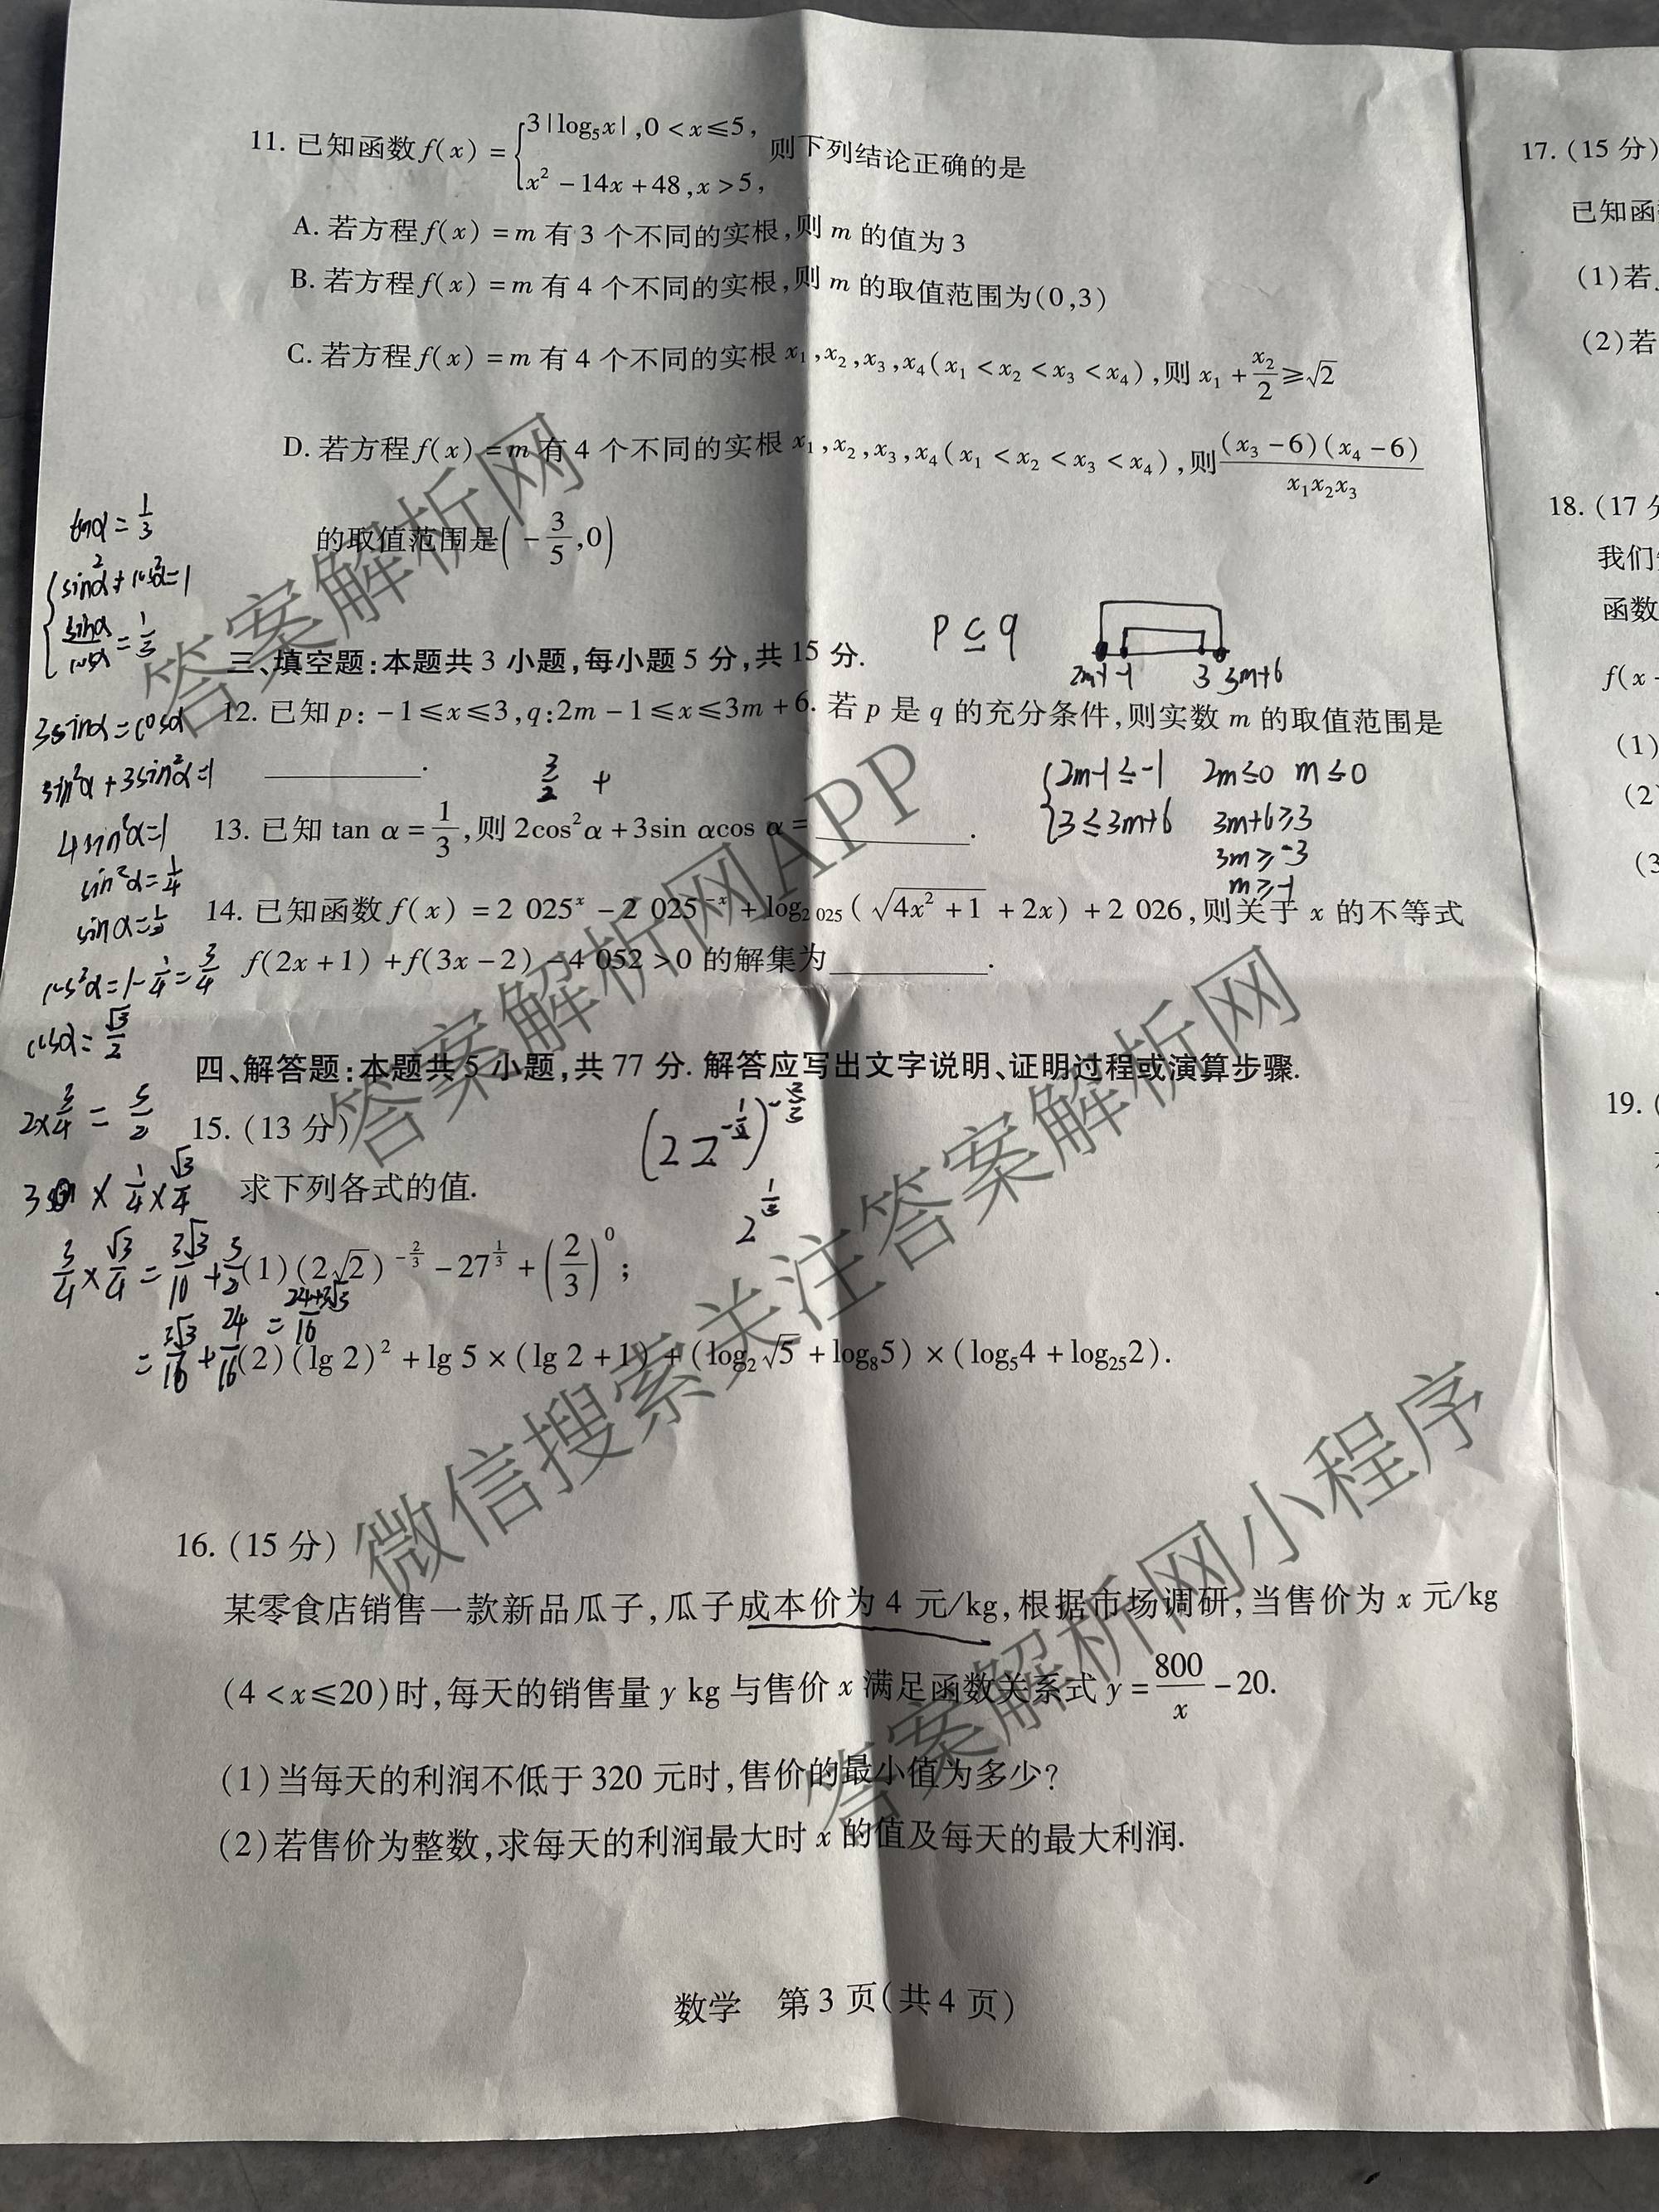 11. 已知函数 f(x) = { 3|log₅x|, 0 < x ≤ 5,
x² − 14x + 48, x > 5,
则下列结论正确的是
A. 若方程 f(x) = m 有 3 个不同的实根,则 m 的值为 3
B. 若方程 f(x) = m 有 4 个不同的实根,则 m 的取值范围为(0,3)
C. 若方程 f(x) = m 有 4 个不同的实根 x₁,x₂,x₃,x₄(x₁ < x₂ < x₃ < x₄),则 x₁ + x₂/2 ≥ √2
D. 若方程 f(x) = m 有 4 个不同的实根 x₁,x₂,x₃,x₄(x₁ < x₂ < x₃ < x₄),则 (x₃ − 6)(x₄ − 6)/(x₁x₂x₃)
的取值范围是(−3/5,0)
三、填空题:本题共 3 小题,每小题 5 分,共 15 分.
p ⊆ q
2m-1 -1 3 3m+6
12. 已知 p: −1 ≤ x ≤ 3, q: 2m − 1 ≤ x ≤ 3m + 6. 若 p 是 q 的充分条件,则实数 m 的取值范围是
______.
3/2 +
{ 2m-1 ≤ -1 2m ≤ 0 m ≤ 0
3 ≤ 3m+6 3m+6 ≥ 3
3m ≥ -3
m ≥ -1
13. 已知 tan α = 1/3,则 2cos²α + 3sin αcos α = ______.
14. 已知函数 f(x) = 2 025ˣ − 2 025⁻ˣ + log₂ ₀₂₅(√(4x² + 1) + 2x) + 2 026,则关于 x 的不等式
f(2x + 1) + f(3x − 2) − 4 052 > 0 的解集为______.
四、解答题:本题共 5 小题,共 77 分. 解答应写出文字说明、证明过程或演算步骤.
15. (13 分)
求下列各式的值.
(1)(2√2)^(−2/3) − 27^(1/3) + (2/3)⁰;
(2)(lg 2)² + lg 5 × (lg 2 + 1) + (log₂√5 + log₈5) × (log₅4 + log₂₅2).
16. (15 分)
某零食店销售一款新品瓜子,瓜子成本价为 4 元/kg,根据市场调研,当售价为 x 元/kg
(4 < x ≤ 20)时,每天的销售量 y kg 与售价 x 满足函数关系式 y = 800/x − 20.
(1)当每天的利润不低于 320 元时,售价的最小值为多少?
(2)若售价为整数,求每天的利润最大时 x 的值及每天的最大利润.
数学 第 3 页(共 4 页)
tanα = 1/3
{ sin²α + cos²α = 1
sinα/cosα = 1/3
3sinα = cosα
sin²α + 3sin²α = 1
4sin²α = 1
sin²α = 1/4
sinα = 1/2
cos²α = 1 - 1/4 = 3/4
cosα = √3/2
17. (15 分)
已知函
(1)若
(2)若
18. (17 分
我们
函数
f(x −
(1)
(2)
(3
19. (
答案解析网
答案解析网APP
微信搜索关注答案解析网
答案解析网小程序